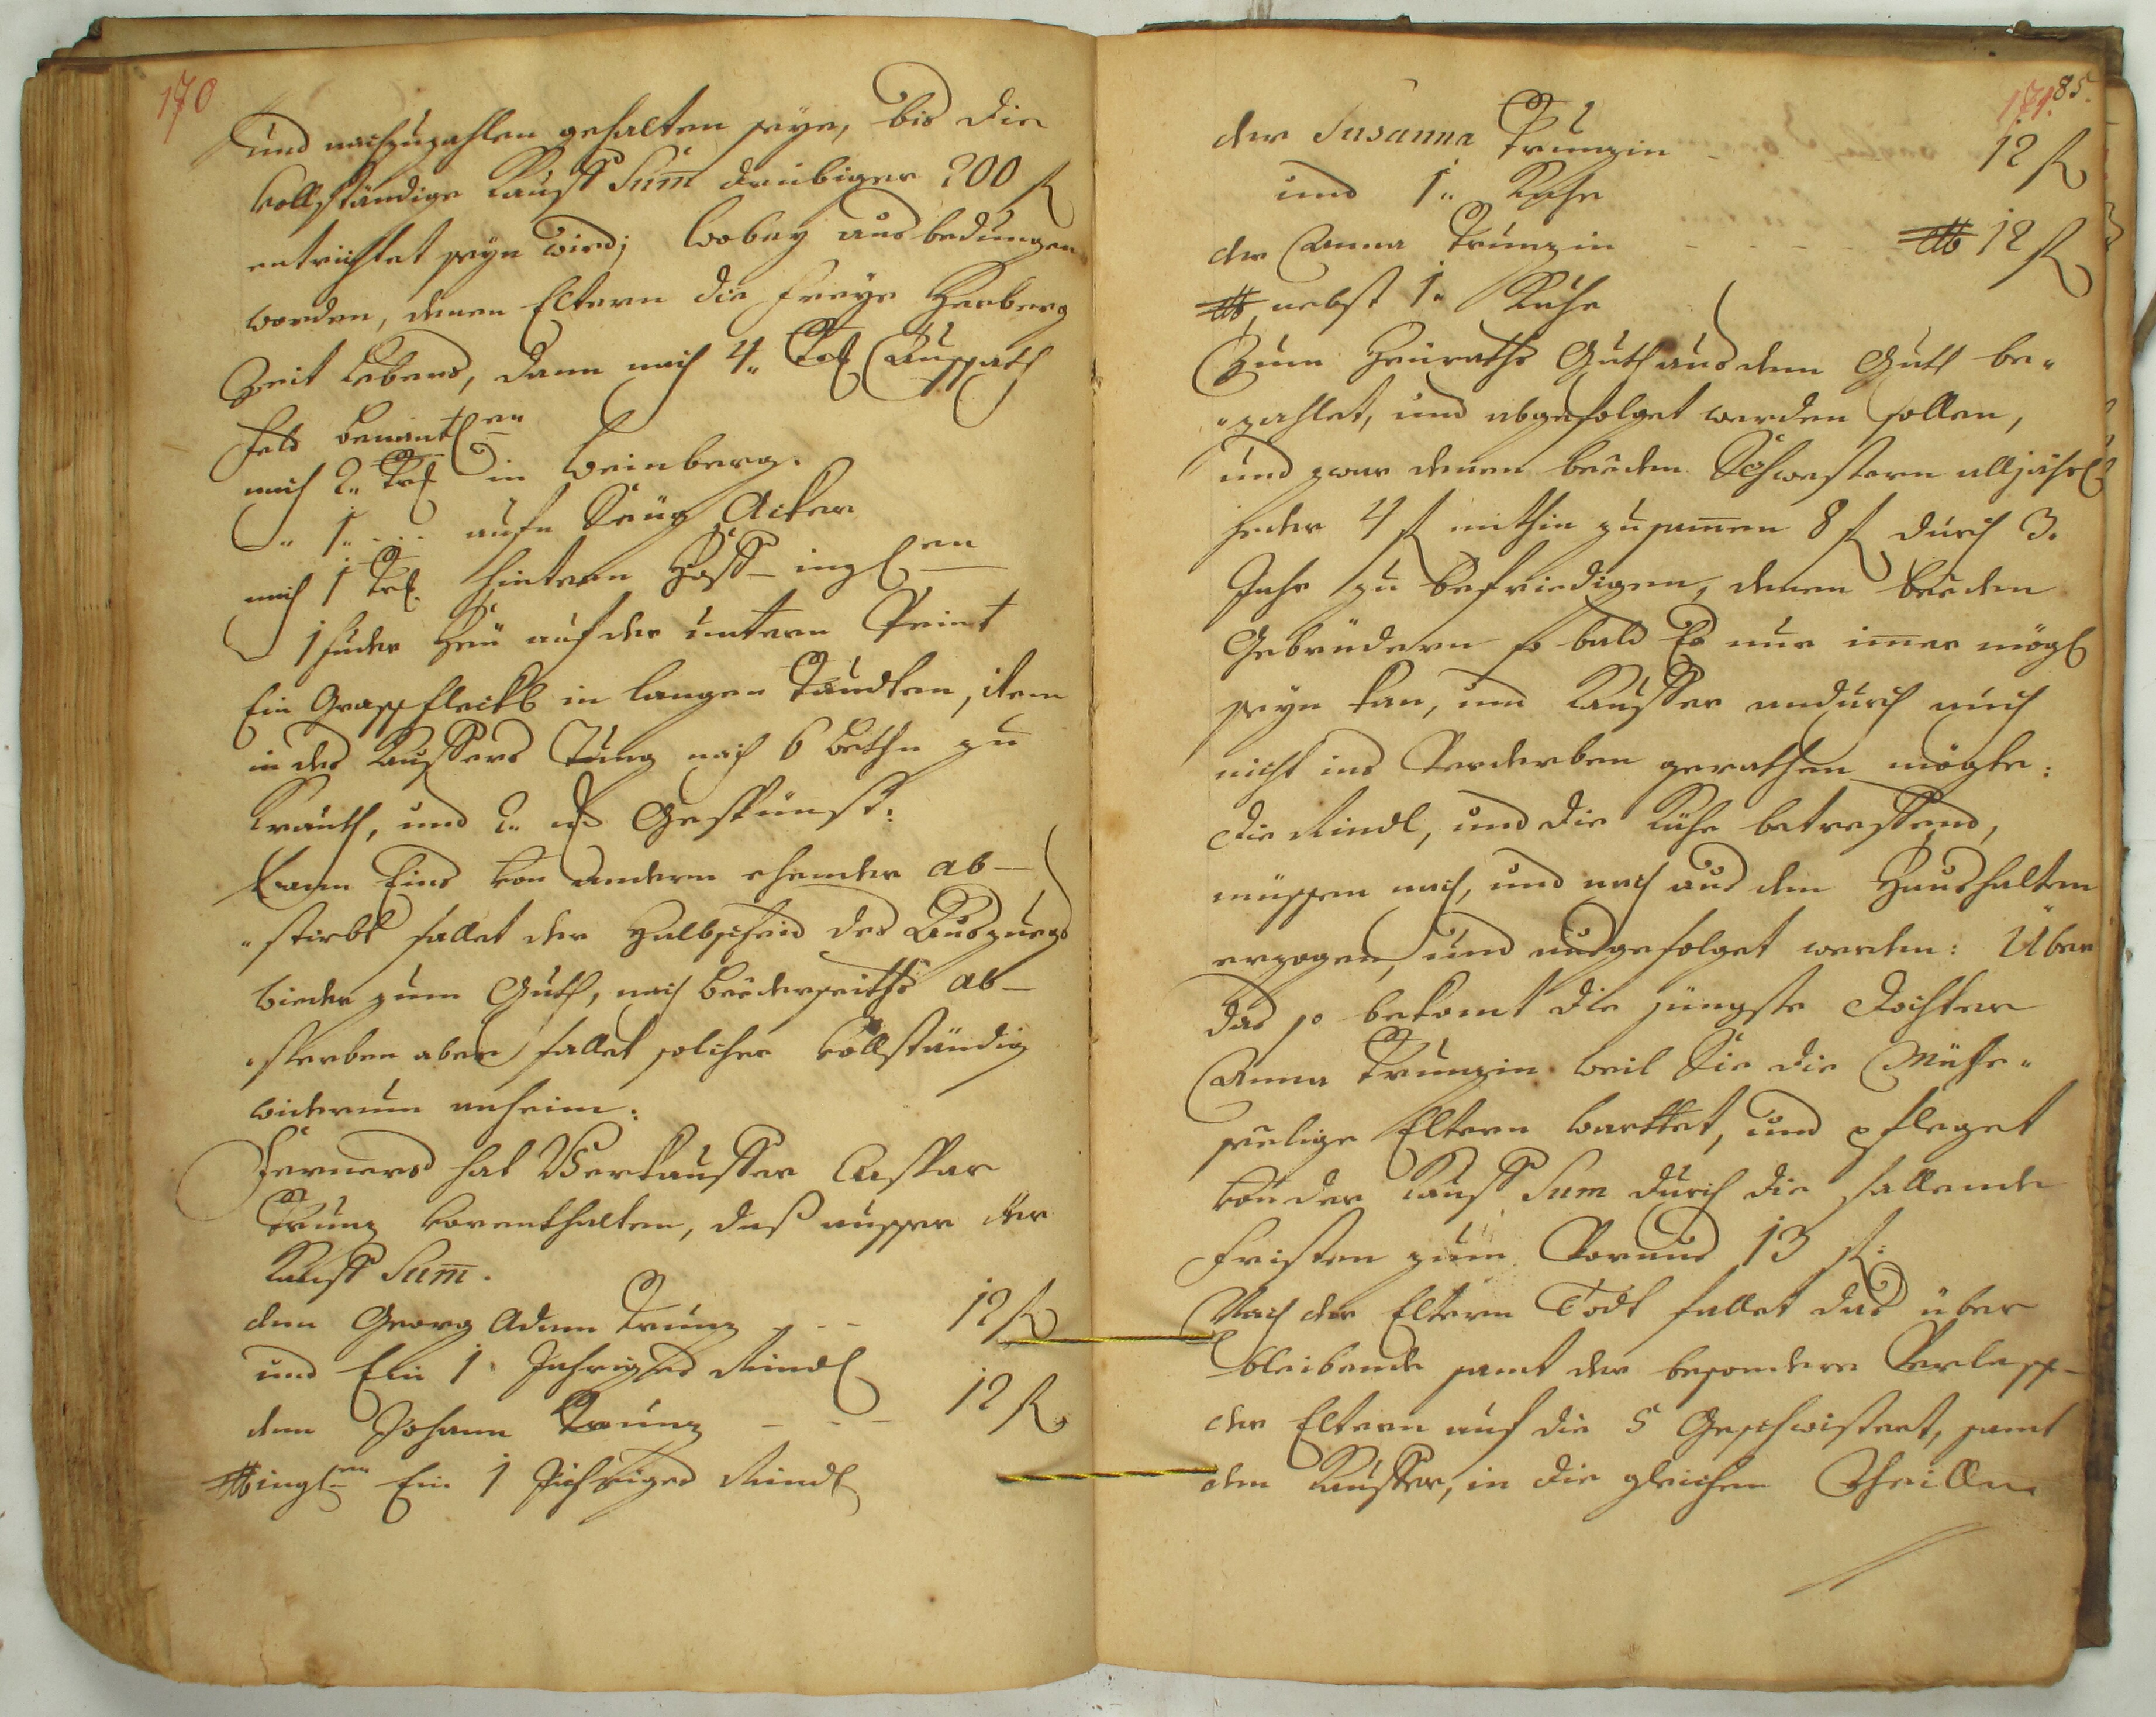 170
und nachzuzahlen gehalten seye, bis die
vollständige Kauff Sum̅ drübiger 200 f
entrichtet seyn wird; wobey ausbedungen
worden, denen Eltern die freye Herberg
Zeit Lebens, dann nach 4„ Aussath
Feld benantl:en
nach 2„ in Weinberg.
„ 1„ ... aufn Acker
nach 1 hintern Hoff ingl:en
1 Fuder Heü auf der untern Peint
Ein Grassfleckl in langen, item
in des Kauffers Tung nach 6 Bethe zu
Krauth, und 2„ Gespünst:
Wann Eins von andern ehender ab-
„stirbt fallet der Halbscheid des Auszugs
wieder zum Guth, nach beederseiths ab-
„sterben aber fallet solcher vollständig
widerum anheim:
Ferners hat Verkauffer Caspar
Trunz vorenthalten, dass ausser der
Kauff Sum̅.
dem Georg Adam Trunz - - - 12 f
und Ein 1 Jahriges Rindl
dem Johann Trunz - - - 12 f
ingl:en Ein 1 Jähriges Rindl
171. 85.
der Susanna Trunzin - 12 f
und 1„ Kuhe
der Anna Trunzin - - - - 12 f
nebst 1„ Kuhe
Zum Heüraths Guth aus dem Guth be„
„zahlet, und abgefolget werden sollen,
und zwar denen beeden Schwestern alljährl
jeder 4 f mithin zusam̅en 8 f durch 3.
Jahr zu befriedigen, denen beeden
Gebrüdern so bald Es nur im̅er mögl
seyn kan, und Kauffer andurch auch
nicht ins Verderben gerathen mögte:
die Rindl, und die Kühe betreffend,
müssen nach, und nach aus dem Haushalten
erzogen, und ausgefolget werden: Über
das so bekomt die jüngste Dochter
Anna Trunzin weil Sie die Mühe„
seelige Eltern warttet, und pfleget
von der Kauff Sum durch die fallende
Fristen zum Voraus 13 f:
Nach der Eltern Todt fallet das über
bleibende samt der besondern Verlass-
der Eltern auf die 5 Geschwistert, samt
dem Kauffer, in die gleichen Theille.